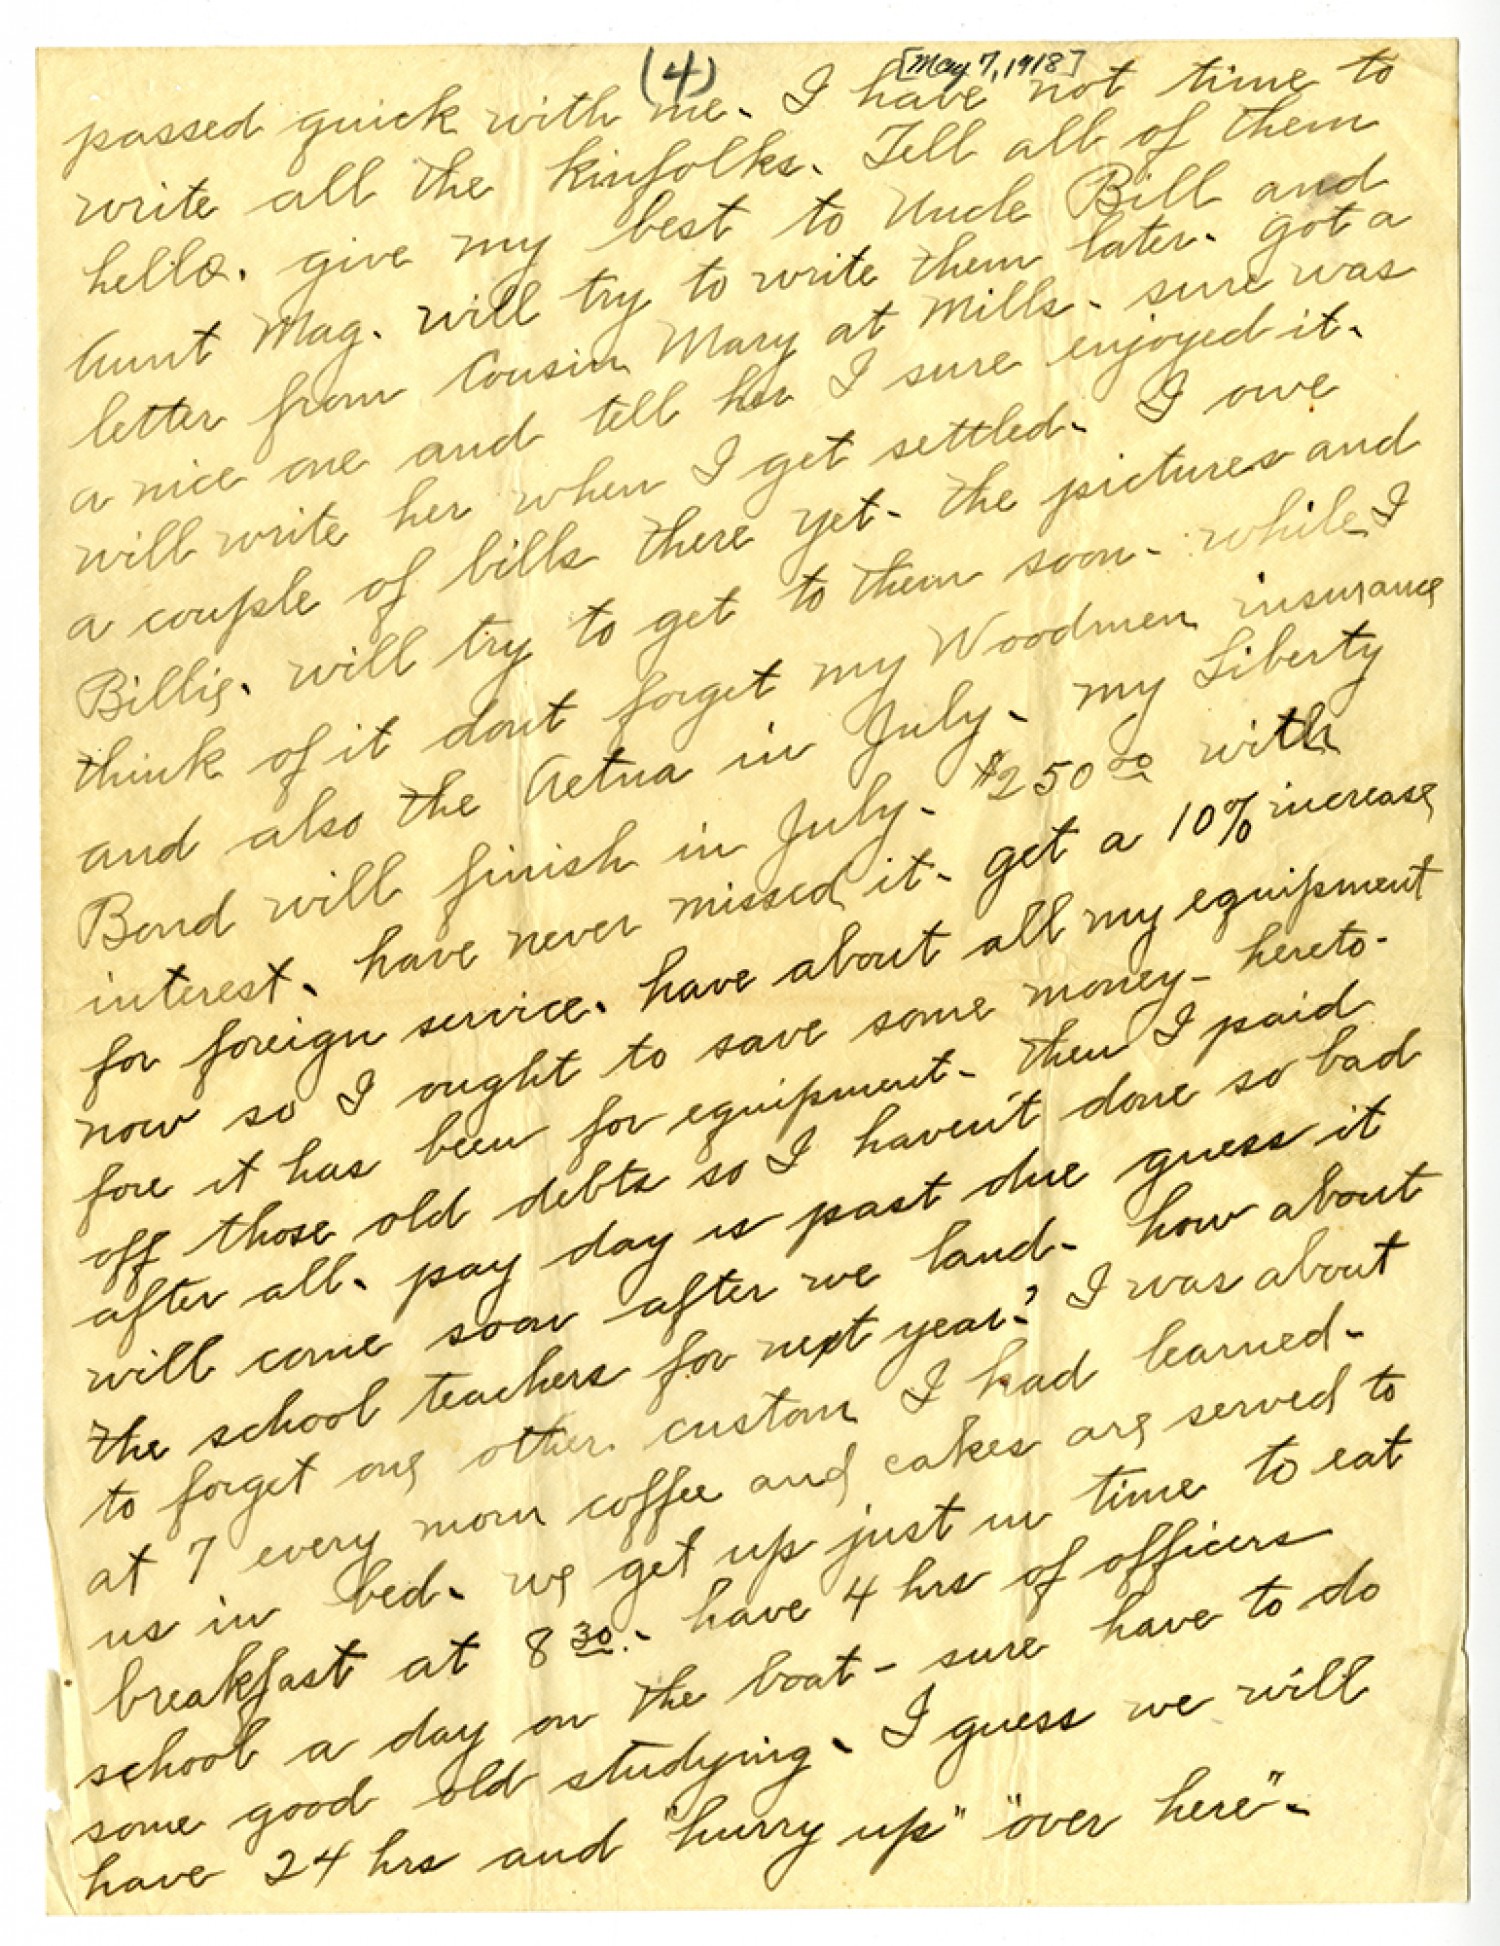 (4) [May 7, 1918]
passed quick with me. I have not time to
write all the kinfolks. Tell all of them
hello. give my best to Uncle Bill and
Aunt Mag. will try to write them later. got a
letter from Cousin Mary at Mills. sure was
a nice one and tell her I sure enjoyed it.
will write her when I get settled. I owe
a couple of bills there yet. the pictures and
Billig. will try to get to them soon. while I
think of it dont forget my Woodmen insurance
and also the Aetna in July. my Liberty
Bond will finish in July. $250 00 with
interest. have never missed it. get a 10% increase
for foreign service. have about all my equipment
now so I ought to save some money - hereto-
fore it has been for equipment. then I paid
off those old debts so I haven't done so bad
after all. pay day is past due guess it
will come soon after we land. how about
the school teachers for next year? I was about
to forget one other custom I had learned.
at 7 every morn coffee and cakes are served to
us in bed. we get up just in time to eat
breakfast at 8 30. have 4 hrs of officers
school a day on the boat - sure have to do
some good old studying. I guess we will
have 24 hrs and "hurry up" "over here".